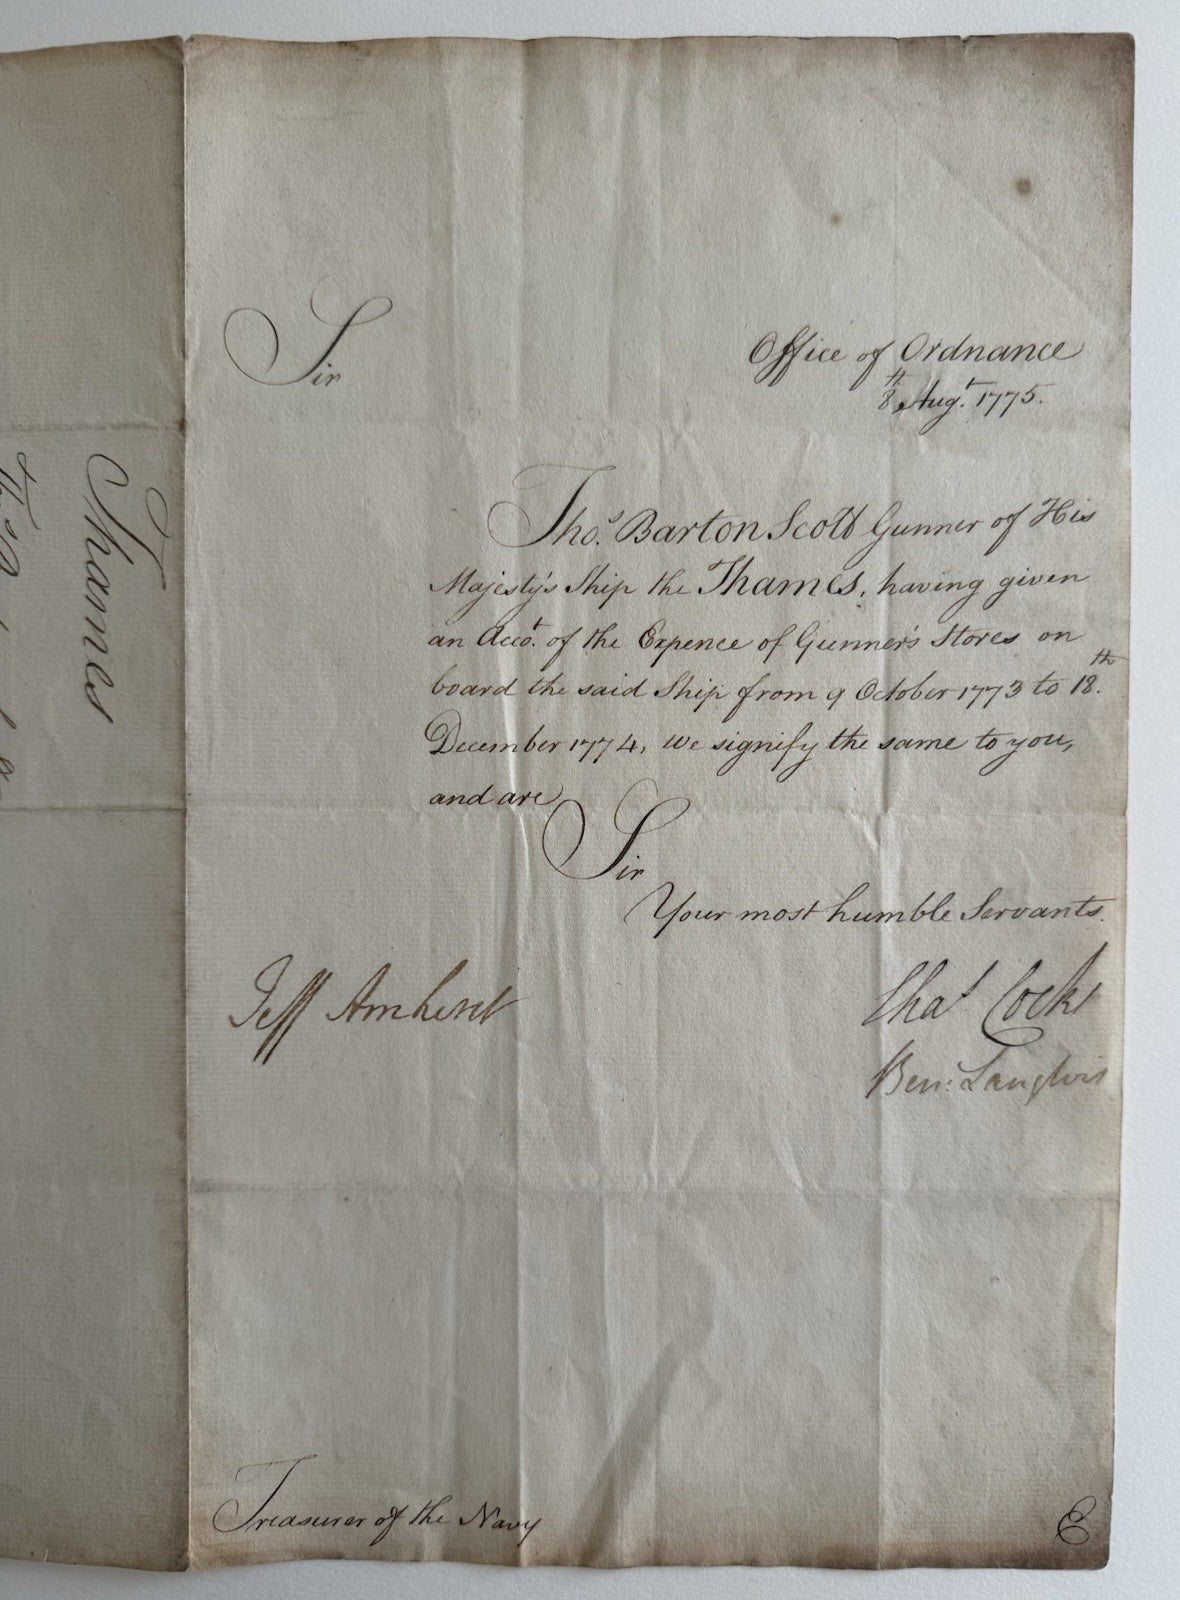 Sir
Office of Ordnance
8th Augt. 1775.
Thos. Barton Scott Gunner of His
Majesty's Ship the Thames, having given
an Accot. of the Expence of Gunner's Stores on
board the said Ship from 9 October 1773 to 18th.
December 1774, We signify the same to you,
and are
Sir
Your most humble Servants.
Jeff Amherst
Chas Cocks
Ben: Langlois
Treasurer of the Navy
E
Thames